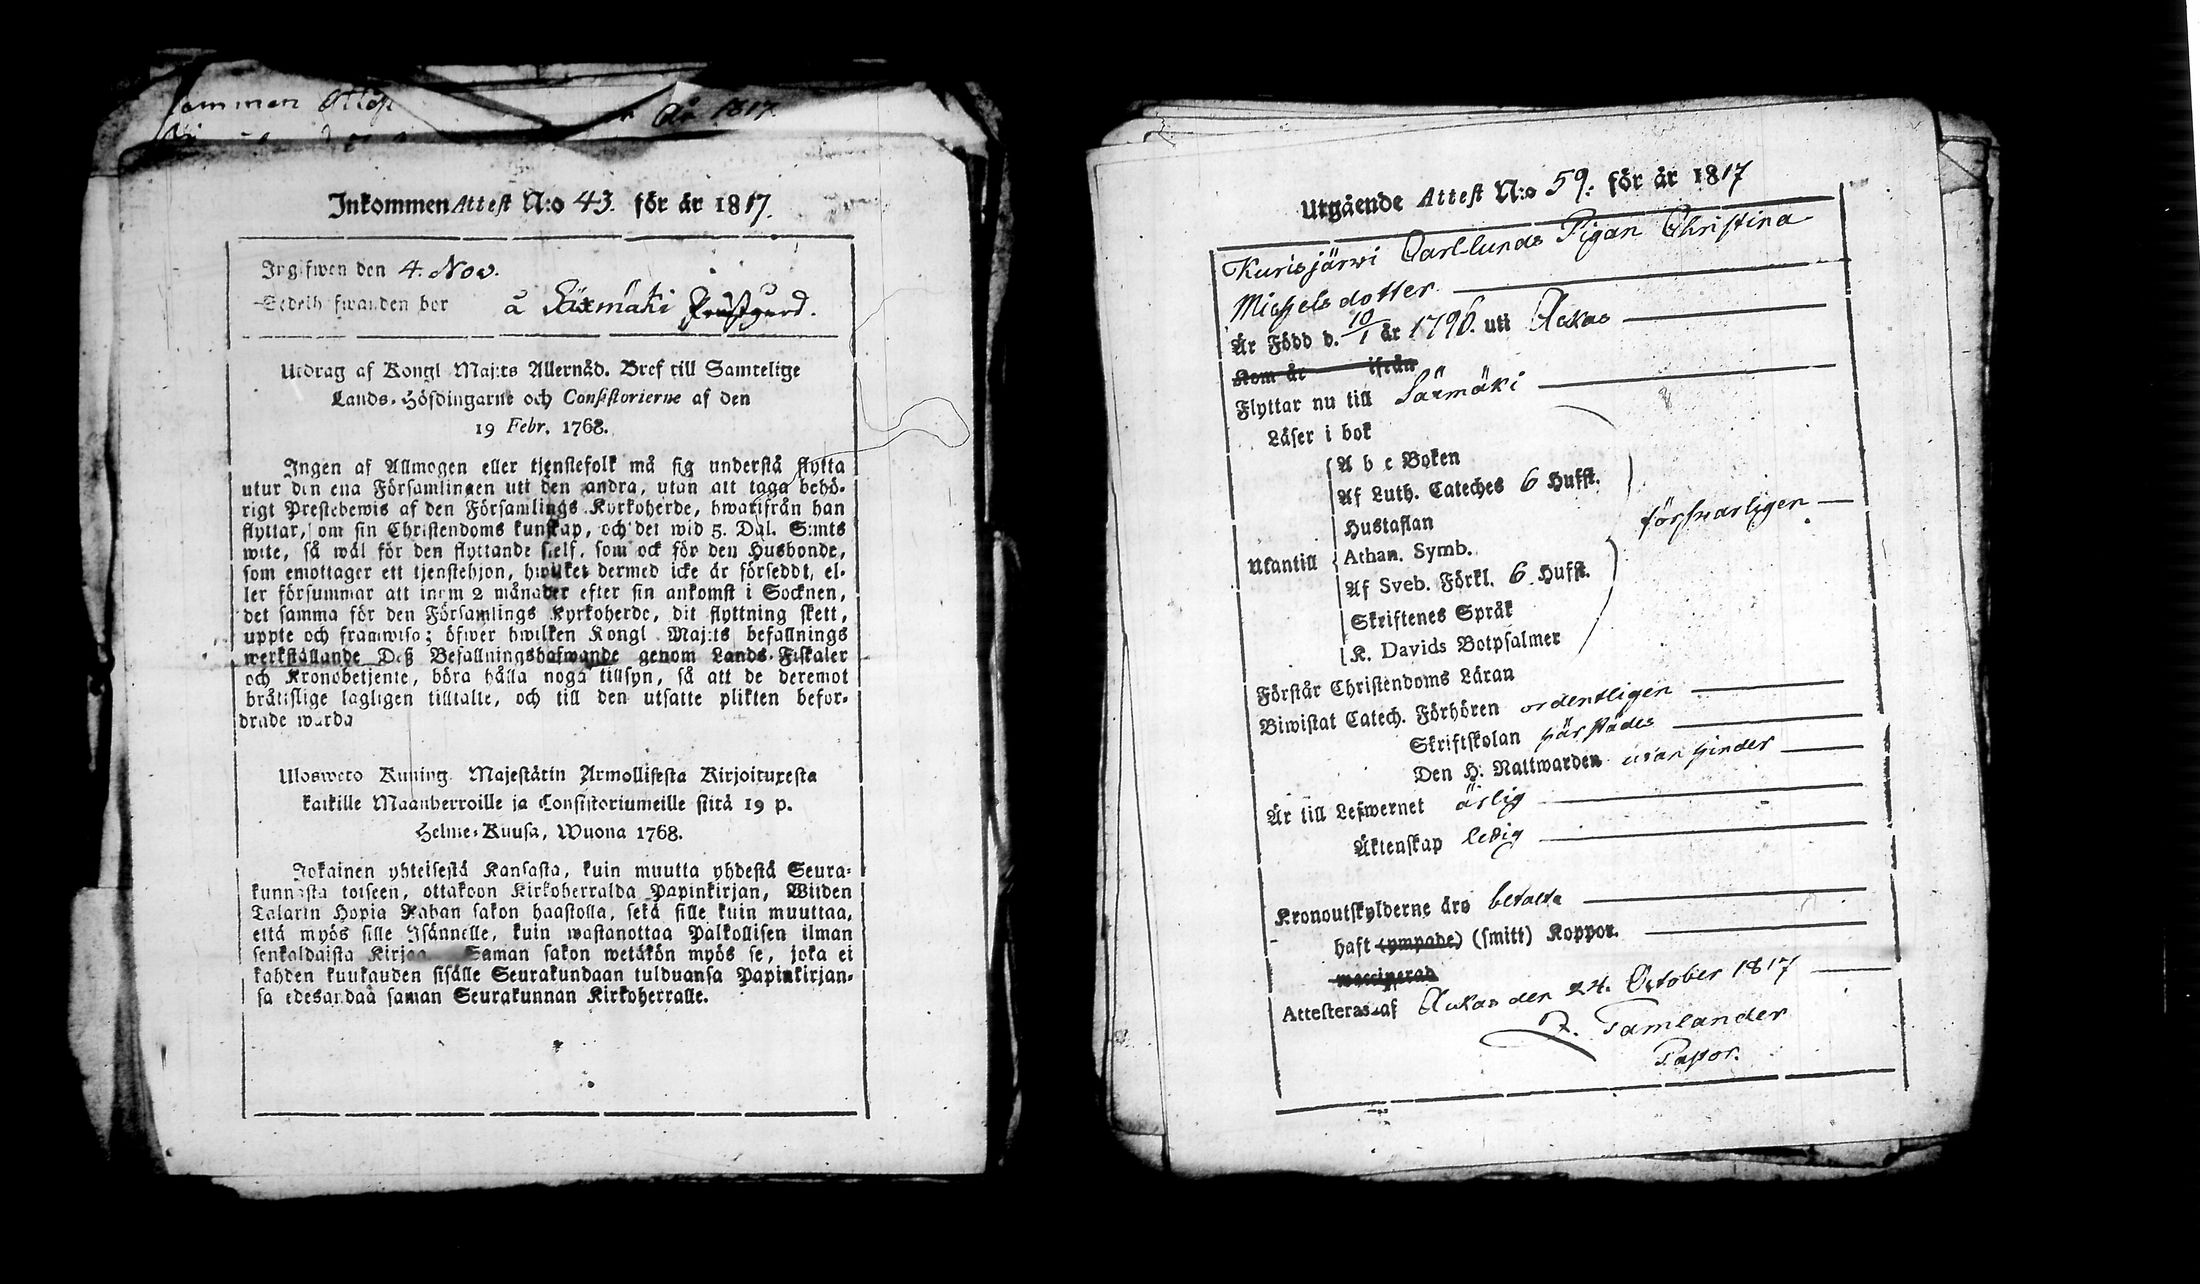 År 1817.
Inkommen Attest N:o 43. för år 1817.
Ingifwen den 4. Nov.
Sedelhafwanden bor å Säxmäki Prästgård.
Utdrag af Kongl. Maj:ts Allernåd. Bref till Samtelige
Lands-Höfdingarne och Consistorierne af den
19 Febr. 1768.
Ingen af Allmogen eller tjenstefolk må sig understå flytta
utur den ena Församlingen uti den andra, utan att taga behö-
rigt Prestebewis af den Församlings Kyrkoherde, hwarifrån han
flyttar, om sin Christendoms kunskap, och det wid 5. Dal. S:mts
wite, så wäl för den flyttande sielf, som ock för den Husbonde,
som emottager ett tjenstehjon, hwilket dermed icke är försedt, el-
ler försummar att inom 2 månader efter sin ankomst i Socknen,
det samma för den Församlings Kyrkoherde, dit flyttning skett,
uppte och framwisa; öfwer hwilken Kongl. Maj:ts befallnings
werkställande Deß Befallningshafwande genom Lands-Fiskaler
och Kronobetjente, böra hålla noga tillsyn, så att de deremot
bråtislige lagligen tilltalte, och till den utsatte plikten befor-
drade warda
Ulosweto Kuning. Majestätin Armollisesta Kirjoituxesta
kaikille Maanherroille ja Consistoriumeille siitä 19 p.
Helme-Kuusa, Wuona 1768.
Jokainen yhteisestä Kansasta, kuin muutta yhdestä Seura-
kunnasta toiseen, ottakoon Kirkoherralda Papinkirjan, Wiiden
Talarin Hopia Rahan sakon haastolla, sekä sille kuin muuttaa,
että myös sille Isännelle, kuin wastanottaa Palkollisen ilman
senkaldaista Kirjaa Saman sakon wetäkön myös se, joka ei
kahden kuukauden sisälle Seurakundaan tulduansa Papinkirjan-
sa edesandaa saman Seurakunnan Kirkoherralle.
Utgående Attest N:o 59. för år 1817
Kurisjärwi Carl-lunds Pigan Christina
Michelsdotter
Är Född d. 10/1 år 1796. uti Ackas
Kom år ifrån
Flyttar nu till Säxmäki
Läser i bok
A b c Boken
Af Luth. Cateches 6 Hufst.
Hustaflan
försvarligen
Utantill Athan. Symb.
Af Sveb. Förkl. 6 Hufst.
Skriftenes Språk
K. Davids Botpsalmer
Förstår Christendoms Läran
Biwistat Catech. Förhören ordentligen
Skriftskolan härstädes
Den H. Nattwarden utan hinder
Är till Lefwernet ärlig
Äktenskap ledig
Kronoutskylderne äro betalte
haft (ympade) (smitt) Koppor.
vaccinerad
Attesteras af Ackas den 24. October 1817
Z. Tamlander
Pastor.